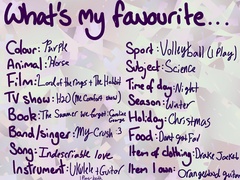 What's my favourite...
Colour: Purple
Animal: Horse
Film: Lord of the rings + The Hobbit
TV show: H2O (My Comfort show)
Book: The Summer we forgot: Caroline George
Band/singer: My-Crush :3
Song: Indescribable love
Instrument: Ukulele + Guitar
Sport: Volleyball (I Play)
Subject: Science
Time of day: Night
Season: Winter
Holiday: Christmas
Food: Dont got Fav
Item of clothing: Drake Jacket
Item I own: Orangewood guitar